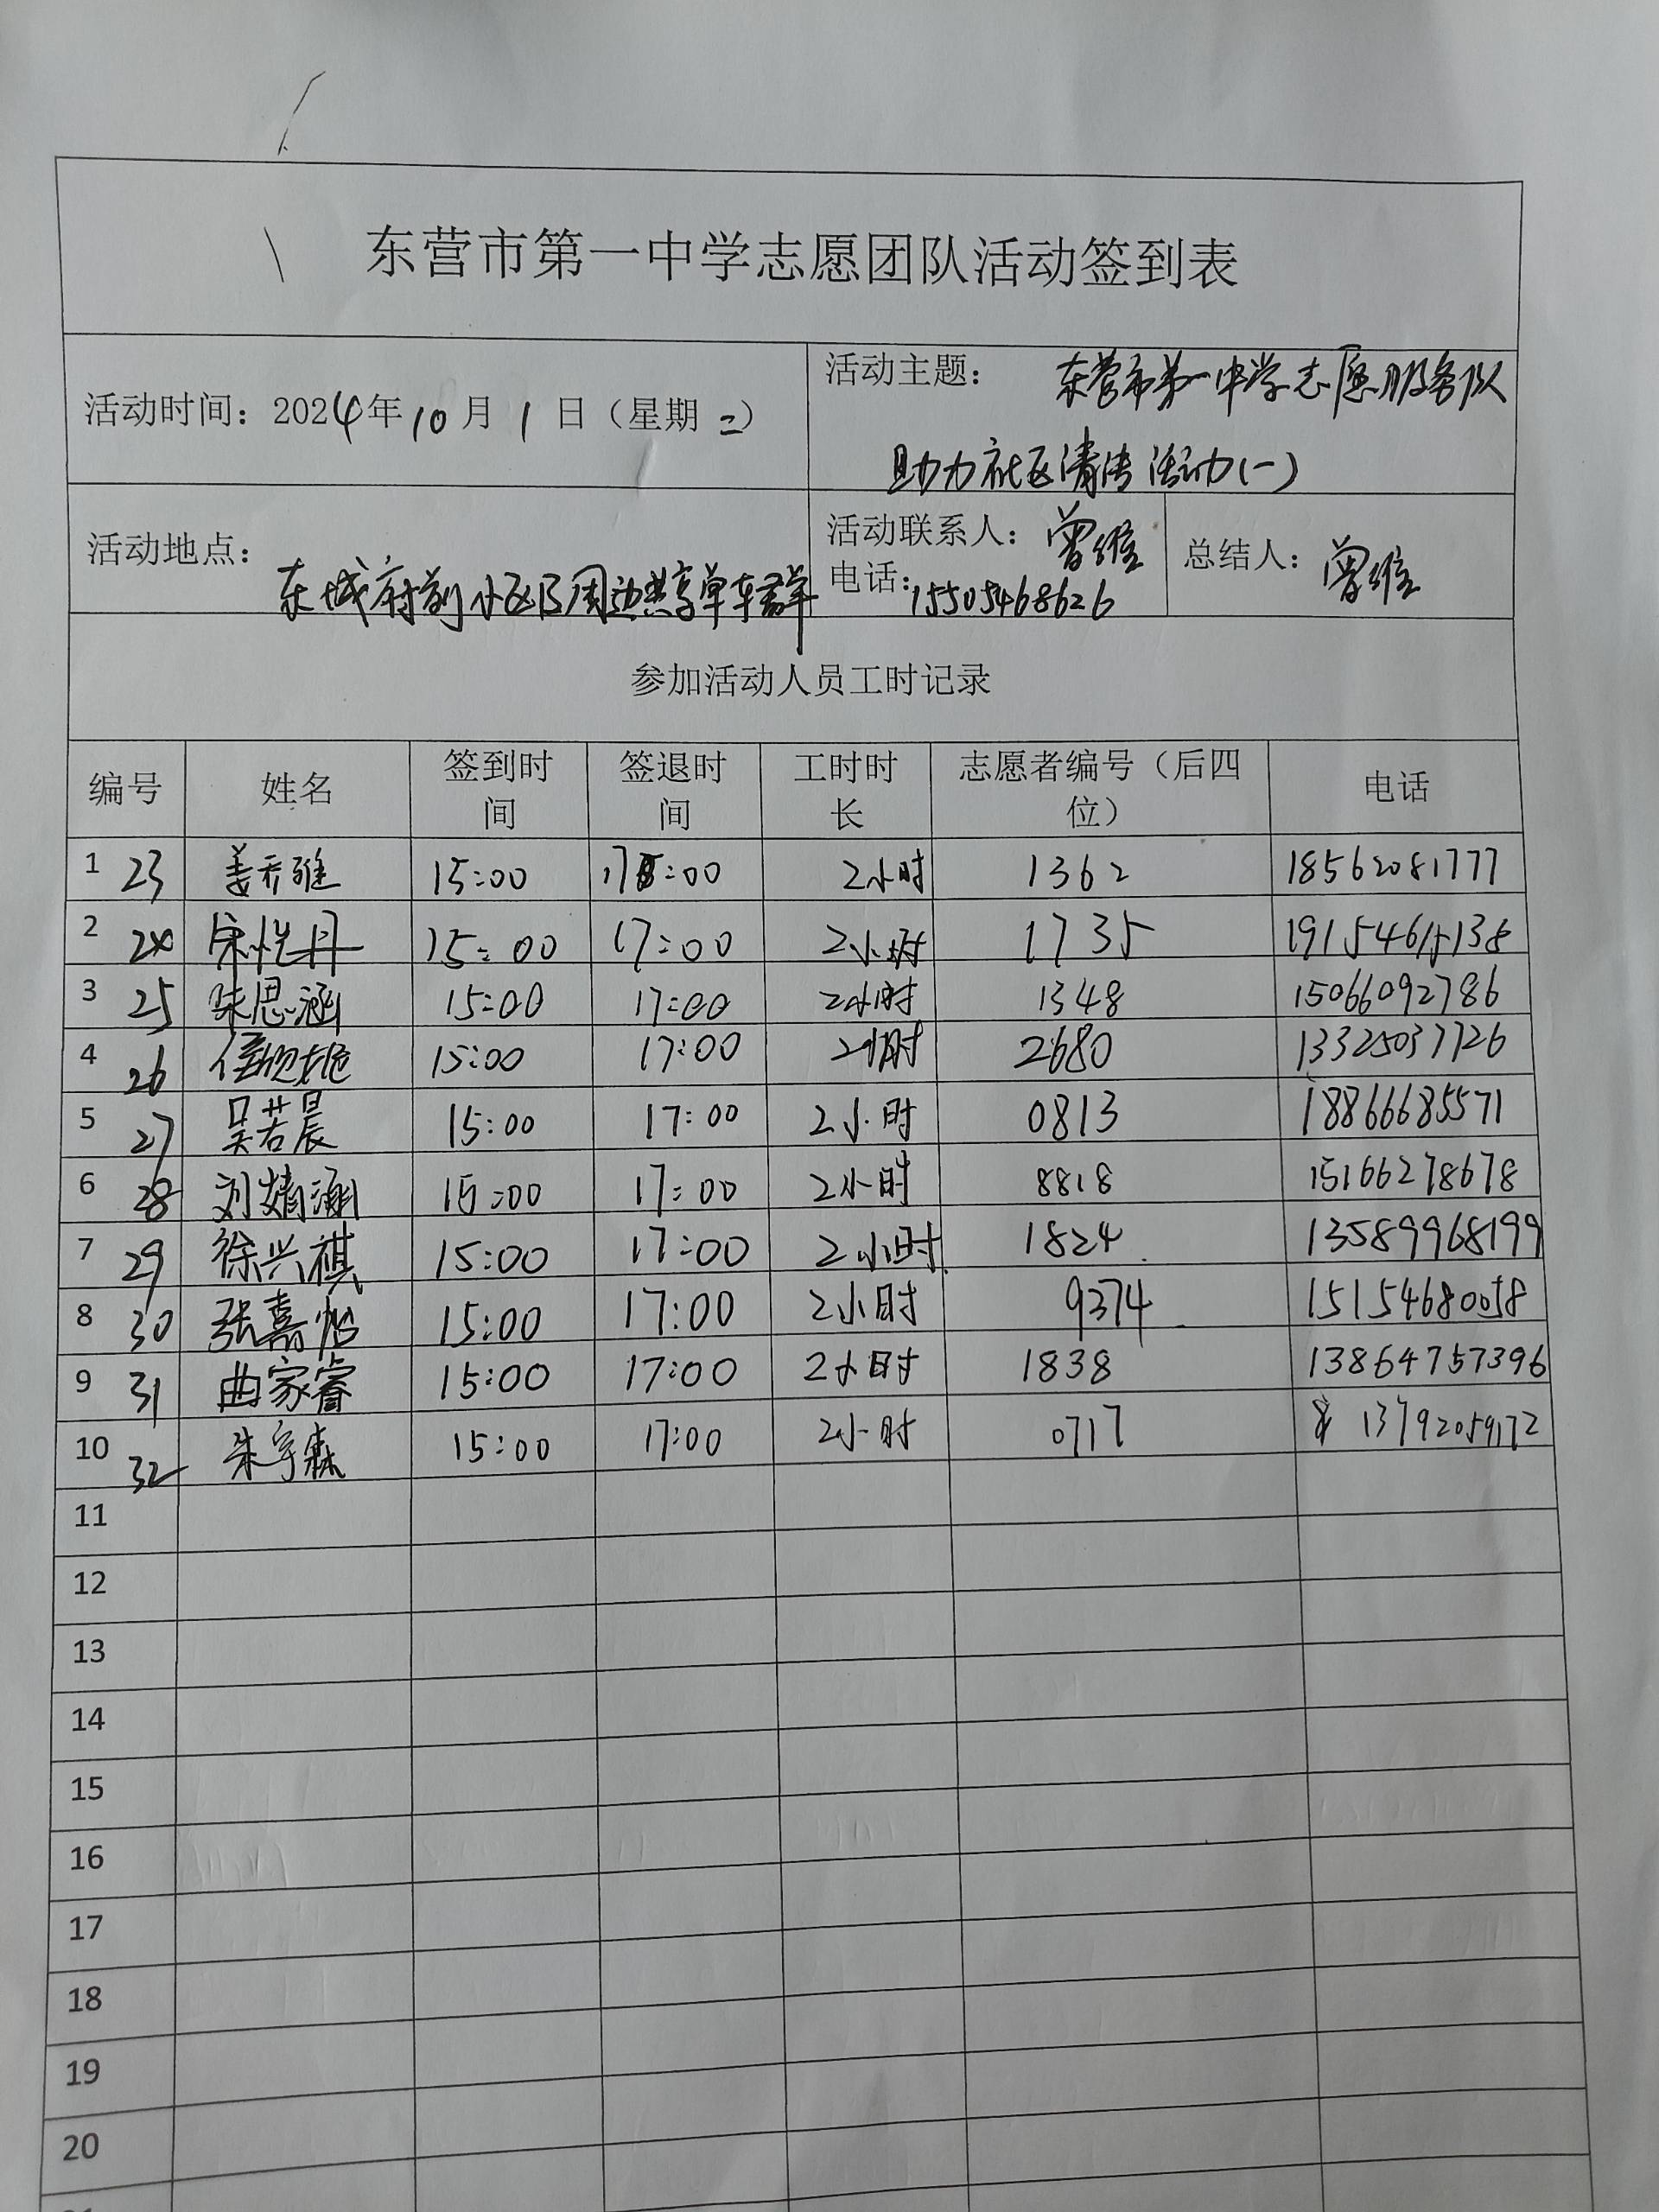 东营市第一中学志愿团队活动签到表
活动时间：2024年10月1日（星期二）
活动主题： 东营市第一中学志愿服务队
助力社区清洁活动(一)
活动地点：
东城府前小区及周边共享单车
活动联系人：曾维
电话：15505468626
总结人：曾维
参加活动人员工时记录
编号 姓名 签到时间 签退时间 工时时长 志愿者编号（后四位） 电话
1 23 姜乔雅 15:00 17:00 2小时 1362 18562081777
2 24 宋悦丹 15:00 17:00 2小时 1735 19154615138
3 25 陈思涵 15:00 17:00 2小时 1348 15066092786
4 26 15:00 17:00 2小时 2680 13325037726
5 27 吴若晨 15:00 17:00 2小时 0813 18866685571
6 28 刘婧涵 15:00 17:00 2小时 8818 15166278678
7 29 徐兴祺 15:00 17:00 2小时 1824 13589968199
8 30 张嘉怡 15:00 17:00 2小时 9374 15154680058
9 31 曲家睿 15:00 17:00 2小时 1838 13864757396
10 32 朱宇森 15:00 17:00 2小时 0717 13792059172
11
12
13
14
15
16
17
18
19
20